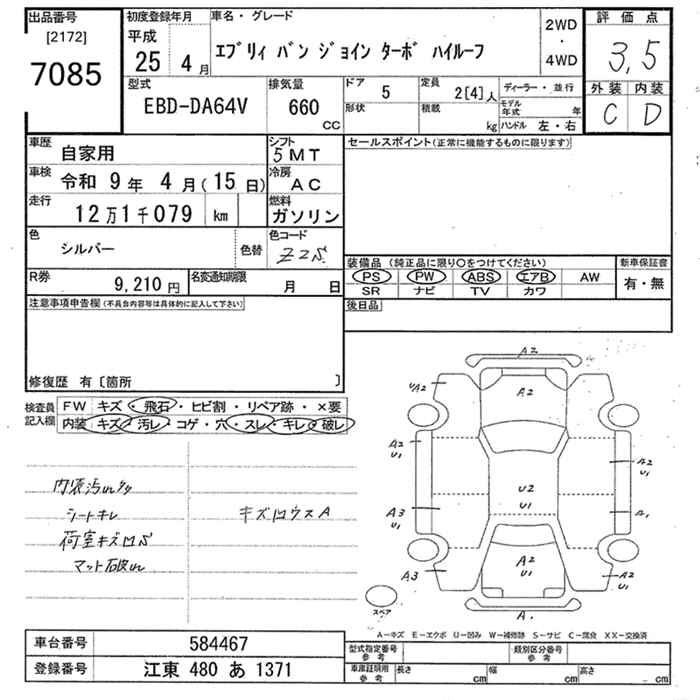 出品番号
[2172]
7085
初度登録年月
平成
25 4月
車名・グレード
エブリィ バン ジョイン ターボ ハイルーフ
2WD
・
4WD
評価点
3,5
外装 内装
C D
型式
EBD-DA64V
排気量
660
CC
ドア 5
形状
定員 2[4]人
積載 kg
ディーラー・並行
モデル年式 年
ハンドル 左・右
車歴 自家用
シフト 5MT
セールスポイント(正常に機能するものに限ります)
車検 令和 9年 4月(15日)
冷房 AC
走行 12万1千079 km
燃料 ガソリン
色 シルバー 色替
色コード Z2S
装備品(純正品に限り○をつけてください)
新車保証書
PS PW ABS エアB AW
有・無
SR ナビ TV カワ
R券 9,210円
名変通知期限 月 日
後日品
注意事項申告欄(不具合内容等は具体的に記入して下さい)
修復歴 有〔箇所 〕
検査員記入欄
FW キズ・飛石・ヒビ割・リペア跡・×要
内装 キズ・汚レ・コゲ・穴・スレ・キレ・破レ
シートキレ
荷室キズ凹S
マット破れ
キズ凹ウスA
A2
A2
A2
A2
U1
A2
U1
U2
U1
A3
U1
A1
A3
A2
U1
A2
U1
A
スペア
A-キズ E-エクボ U-凹み W-補修跡 S-サビ C-腐食 XX-交換済
車台番号 584467
登録番号 江東 480 あ 1371
型式指定番号 参考
類別区分番号 参考
車庫証明用 参考
長さ cm
幅 cm
高さ cm